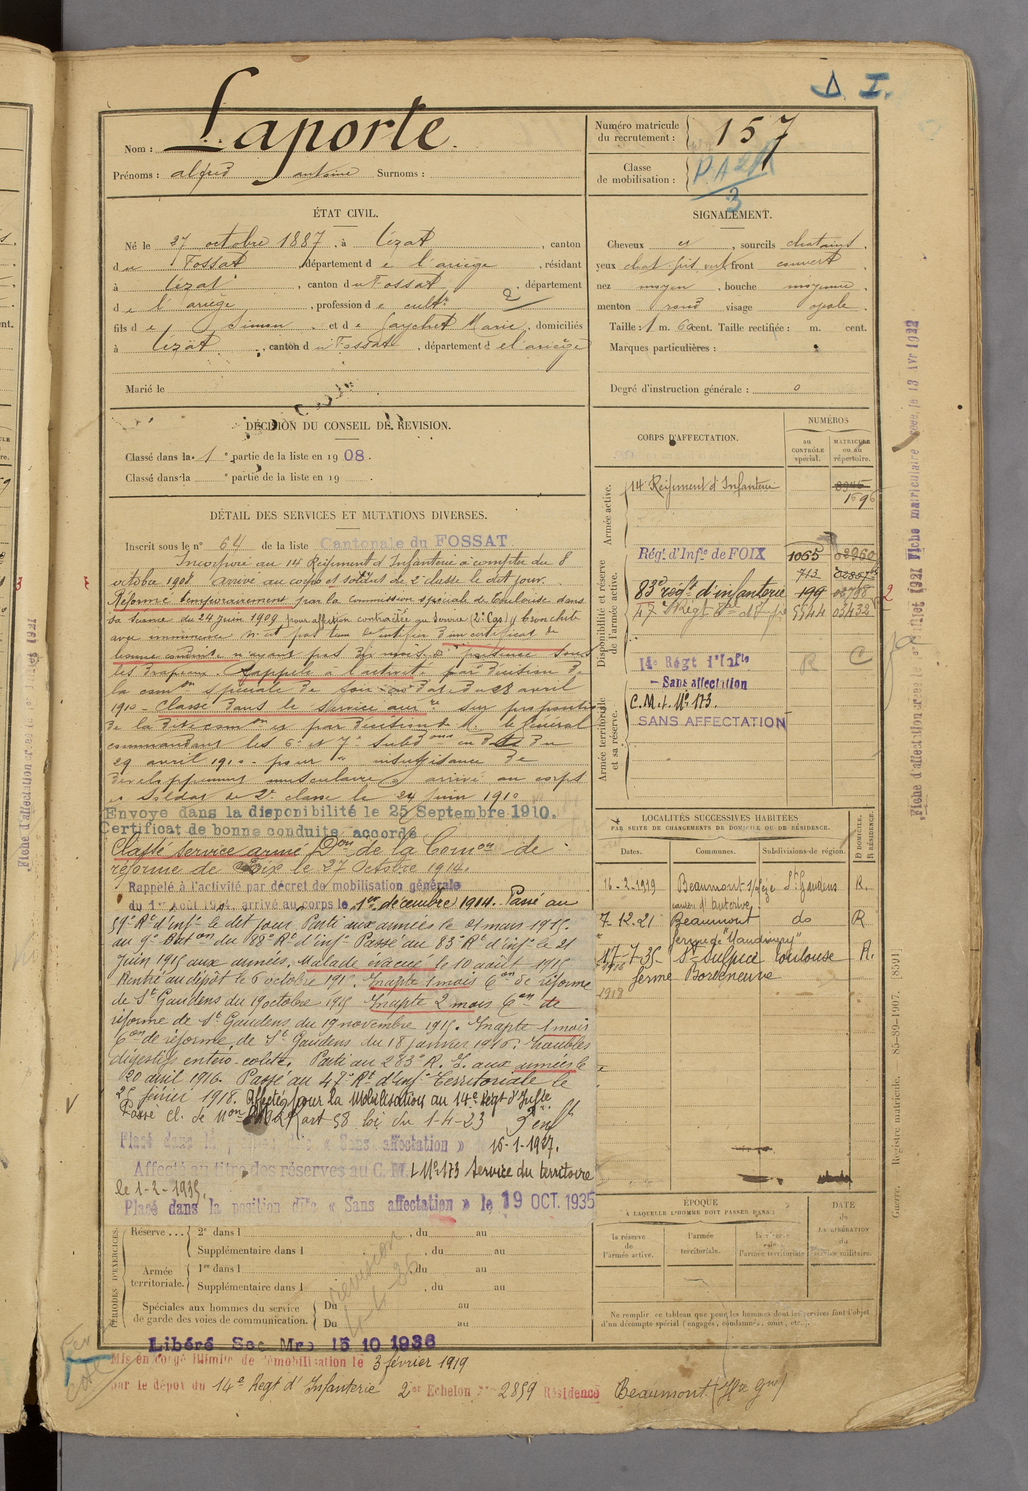 D. I.
Nom : Laporte.
Prénoms : alfred antoine Surnoms :
Numéro matricule du recrutement : 157
Classe de mobilisation :
3
ÉTAT CIVIL.
Né le 27 octobre 1887, à Lézat, canton
du Fossat, département de l'ariège, résidant
à Lézat, canton du Fossat, département
de l'ariège, profession de cultr 2
fils de Simon et de Gaychet Marie, domiciliés
à Lézat, canton du Fossat, département de l'ariège
Marié le
SIGNALEMENT.
Cheveux et, sourcils chatains,
yeux chat. front couvert
nez moyen, bouche moyenne,
menton rond visage ovale.
Taille : 1 m. cent. Taille rectifiée : m. cent.
Marques particulières :
Degré d'instruction générale : 0
DÉCISION DU CONSEIL DE REVISION.
Classé dans la 1e partie de la liste en 1908.
Classé dans la e partie de la liste en 19
DÉTAIL DES SERVICES ET MUTATIONS DIVERSES.
Inscrit sous le n° 64 de la liste Cantonale du FOSSAT
Incorporé au 14 Régiment d'Infanterie à compter du 8
octobre 1908. arrivé au corps et soldat de 2e classe le dit jour.
Réformé temporairement par la commission spéciale de Toulouse dans
sa séance du 24 juin 1909 pour affection contractée au service (2e Cas)
bonne conduite n'ayant pas de présence sous
les drapeaux. Rappelé à l'activité par décision de
la comon spéciale de foix en date du 28 avril
1910 - Classé dans le service aux re sur proposition
de la dite comon et par décision de M. le Général
commandant les 6e et 7e Subdons en date du
29 avril 1910 - pour insuffisance de
développement musculaire arrivé au corps
et Soldat de 2e classe le 24 juin 1910
Envoyé dans la disponibilité le 25 Septembre 1910.
Certificat de bonne conduite accordé
Classé Service armé Don de la Comon de
réforme de Foix le 27 Octobre 1914.
Rappelé à l'activité par décret de mobilisation générale
du 1er août 1914, arrivé au corps le 1er décembre 1914. Passé au
59e Rt d'inf le dit jour Parti aux armées le 21 mars 1915.
au 9e Baton du 88e Rt d'inf Passé au 83e Rt d'inf le 21
Juin 1915 aux armées. Malade évacué le 10 août 1915
Rentré au dépôt le 6 octobre 1915. Inapte 1 mois Con de réforme
de St Gaudens du 19 octobre 1915 Inapte 2 mois Con de
réforme de St Gaudens du 19 novembre 1915. Inapte 1 mois
Con de réforme de St Gaudens du 18 janvier 1916. Troubles
digestifs entéro-colite. Parti au 283e R. I. aux armées le
20 avril 1916. Passé au 47e Rt d'inf Territoriale le
25 février 1918. Affecté pour la Mobilisation au 14e Régt d'Infie
Passé cl. de Mon art 58 loi du 1-4-23
Placé dans la position dite « Sans affectation » 16-1-1927.
Affecté au titre des réserves au C. M. I. No 173 Service du territoire
le 1-2-1935.
Placé dans la position dite « Sans affectation » le 19 OCT. 1935
PÉRIODES D'EXERCICES.
Réserve ... 2e dans l , du au
Supplémentaire dans l , du au
Armée territoriale. 1re dans l , du au
Supplémentaire dans l , du au
Spéciales aux hommes du service de garde des voies de communication. Du au
Du au
revision
Libéré Sce Mre 15 10 1936
Mis en congé illimité de démobilisation le 3 février 1919
par le dépôt du 14e Régt d'Infanterie 2er Echelon No 2859 Résidence Beaumont (Hte Gne)
CORPS D'AFFECTATION.
NUMÉROS
au CONTRÔLE spécial.
MATRICULE ou au répertoire.
Armée active.
14e Régiment d'Infanterie 1696
Disponibilité et réserve de l'armée active.
Régt d'Infie de FOIX 1065 02960
713
83e régt d'infanterie 199
47e Régt 5544 03432
Armée territoriale et sa réserve.
14e Régt d'Infie R C
- Sans affectation
C.M.I. No 173.
SANS AFFECTATION
LOCALITÉS SUCCESSIVES HABITÉES
PAR SUITE DE CHANGEMENTS DE DOMICILE OU DE RÉSIDENCE.
Dates. Communes. Subdivisions de région. D DOMICILE. R RÉSIDENCE.
16-2-1919 Beaumont s/Lèze St Gaudens R.
canton d'Auterive
7-12-21 Beaumont do R
ferme de
17-7-35 St Sulpice Toulouse R.
ferme Bordeneuve
ÉPOQUE
À LAQUELLE L'HOMME DOIT PASSER DANS :
la réserve de l'armée active.
l'armée territoriale.
la réserve de l'armée territoriale
DATE de LA LIBÉRATION du service militaire.
Ne remplir ce tableau que pour les hommes dont les services font l'objet
d'un décompte spécial (engagés, condamnés, omis, etc.).
Guerre. Registre matricule. 85-89-1907. [8591]
Fiche d'affectation créée le 1er Juillet 1921 Fiche matriculaire créée le 13 Avr 1922